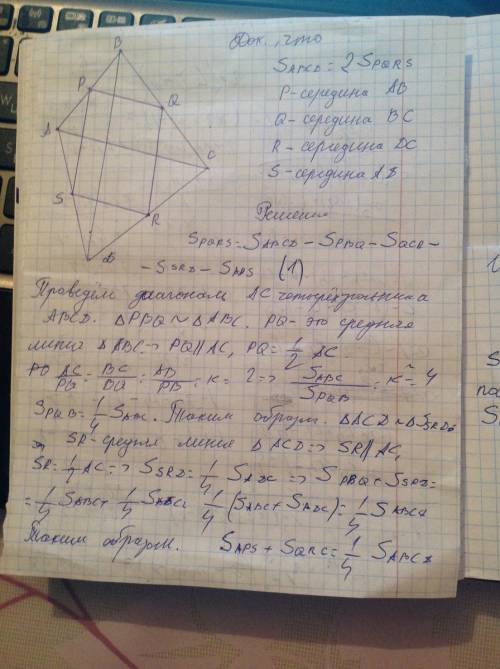 Док., что
S_ABCD = 2 S_PQRS
P - середина AB
Q - середина BC
R - середина DC
S - середина AD
B
P
Q
A
C
S
R
D
Решение
S_PQRS = S_ABCD - S_PBQ - S_QCR -
- S_SRD - S_APS (1)
Проведём диагональ AC четырёхугольника
ABCD. ΔPBQ ~ ΔABC. PQ - это средняя
линия ΔABC => PQ || AC, PQ = 1/2 AC
AC/PQ = BC/BQ = AB/PB = k = 2 => S_ABC/S_PQB = k² = 4
S_PQB = 1/4 S_ABC. Таким образом. ΔACD ~ ΔSRD
SR - средняя линия ΔACD => SR || AC,
SR = 1/2 AC => S_SRD = 1/4 S_ADC => S_PBQ + S_SRD =
= 1/4 S_ABC + 1/4 S_ADC = 1/4 (S_ABC + S_ADC) = 1/4 S_ABCD
Таким образом. S_APS + S_QRC = 1/4 S_ABCD